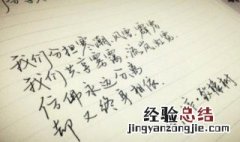 我们分担寒潮、风雷、霹雳
我们共享雾霭、流岚、虹霓
仿佛永远分离
却又终身相依
致橡树
经验总结